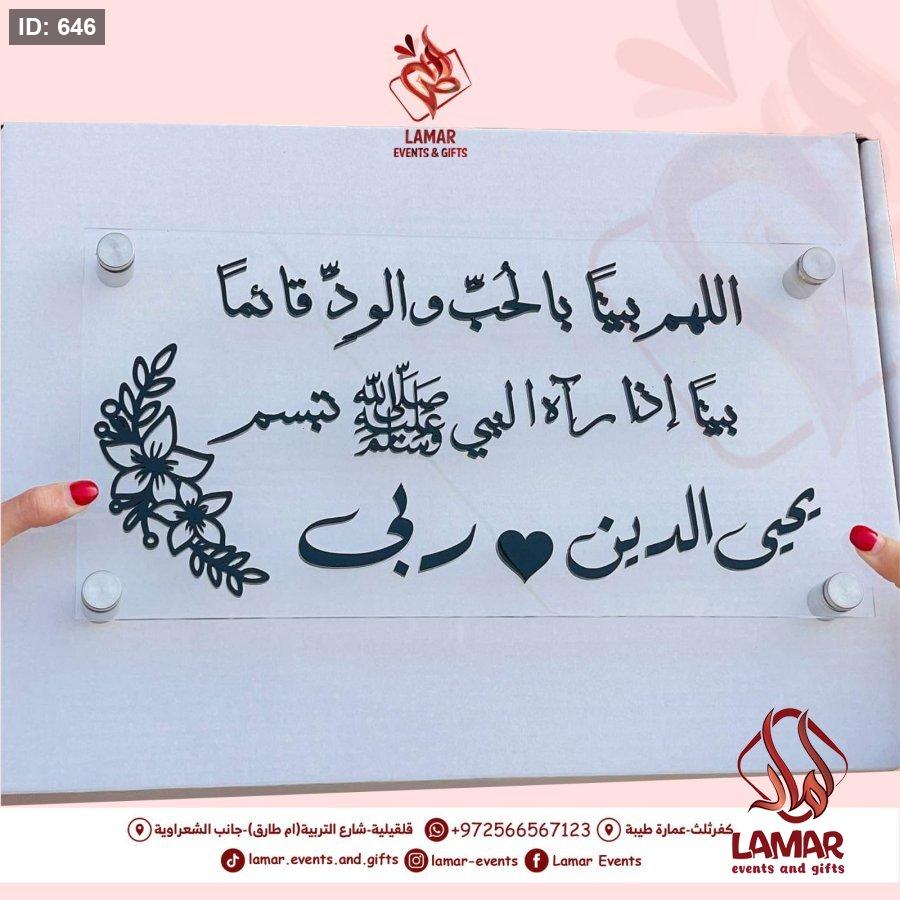 ID: 646
LAMAR
EVENTS & GIFTS
اللهم بيتًا بالحُبّ والودِّ قائمًا
بيتًا إذا رآه النبي ﷺ تبسم
يحيى الدين ربى
لمار
LAMAR
events and gifts
كفرثلث-عمارة طيبة +972566567123 قلقيلية-شارع التربية(ام طارق)-جانب الشعراوية
lamar.events.and.gifts lamar-events Lamar Events